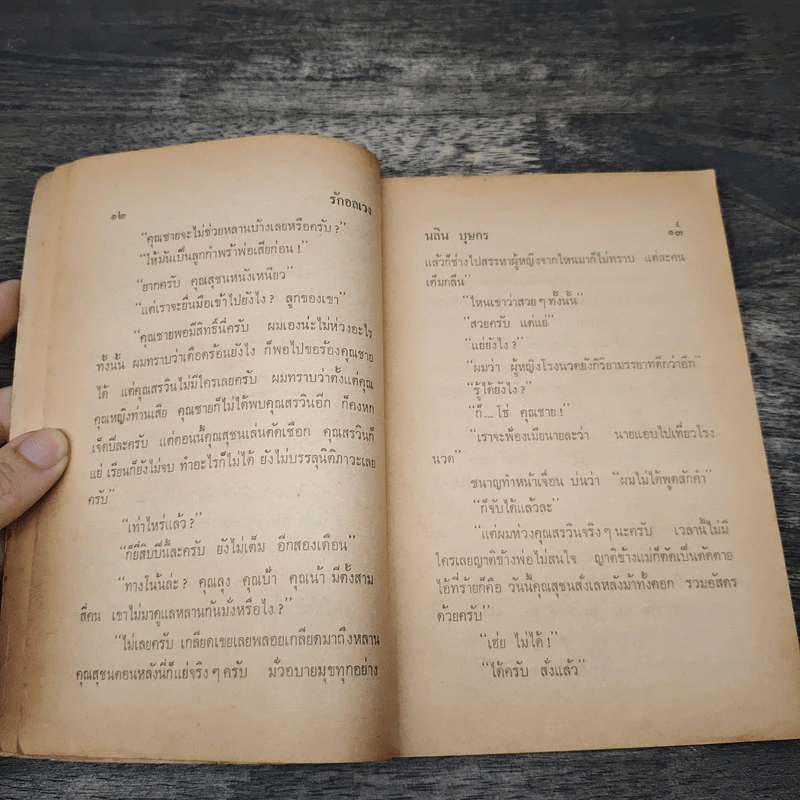 ๑๒
รักอลเวง
“คุณชายจะไม่ช่วยหลานบ้างเลยหรือครับ ?”
“ให้มันเป็นลูกกำพร้าพ่อเสียก่อน !”
“ยากครับ คุณสุชนหนังเหนียว”
“แต่เราจะยื่นมือเข้าไปยังไง ? ลูกของเขา”
“คุณชายพอมีสิทธิ์นี่ครับ ผมเองน่ะไม่ห่วงอะไร
ทั้งนั้น ผมทราบว่าเดือดร้อนยังไง ก็พอไปขอร้องคุณชาย
ได้ แต่คุณสรวินไม่มีใครเลยครับ ผมทราบว่าตั้งแต่คุณ
คุณหญิงท่านเสีย คุณชายก็ไม่ได้พบคุณสรวินอีก ก็คงหก
เจ็ดปีละครับ แต่ตอนนี้คุณสุชนเล่นตัดเชือก คุณสรวินก็
แย่ เรียนก็ยังไม่จบ ทำอะไรก็ไม่ได้ ยังไม่บรรลุนิติภาวะเลย
ครับ”
“เท่าไหร่แล้ว ?”
“ก็ยี่สิบปีนี้ละครับ ยังไม่เต็ม อีกสองเดือน”
“ทางโน้นล่ะ ? คุณลุง คุณป้า คุณน้า มีตั้งสาม
สี่คน เขาไม่มาดูแลหลานกันมั่งหรือไง ?”
“ไม่เลยครับ เกลียดเขยเลยพลอยเกลียดมาถึงหลาน
คุณสุชนตอนหลังนี่ก็แย่จริง ๆ ครับ มั่วอบายมุขทุกอย่าง
นลิน บุษกร
๑๓
แล้วก็ช่างไปสรรหาผู้หญิงจากไหนมาก็ไม่ทราบ แต่ละคน
เต็มกลืน”
“ไหนเขาว่าสวย ๆ ทั้งนั้น”
“สวยครับ แต่แย่”
“แย่ยังไง ?”
“ผมว่า ผู้หญิงโรงนวดยังกิริยามรรยาทดีกว่าอีก”
“รู้ได้ยังไง ?”
“ก็ ... โธ่ คุณชาย !”
“เราจะฟ้องเมียนายละว่า นายแอบไปเที่ยวโรง
นวด”
ชนาญทำหน้าเจื่อน บ่นว่า “ผมไม่ได้พูดสักคำ”
“ก็จับได้แล้วละ”
“แต่ผมห่วงคุณสรวินจริง ๆ นะครับ เวลานี้ไม่มี
ใครเลยญาติข้างพ่อไม่สนใจ ญาติข้างแม่ก็ตัดเป็นตัดตาย
ไอ้ที่ร้ายก็คือ วันนี้คุณสุชนสั่งเลหลังม้าทั้งคอก รวมอัสดร
ด้วยครับ”
“เฮ่ย ไม่ได้ !”
“ได้ครับ สั่งแล้ว”